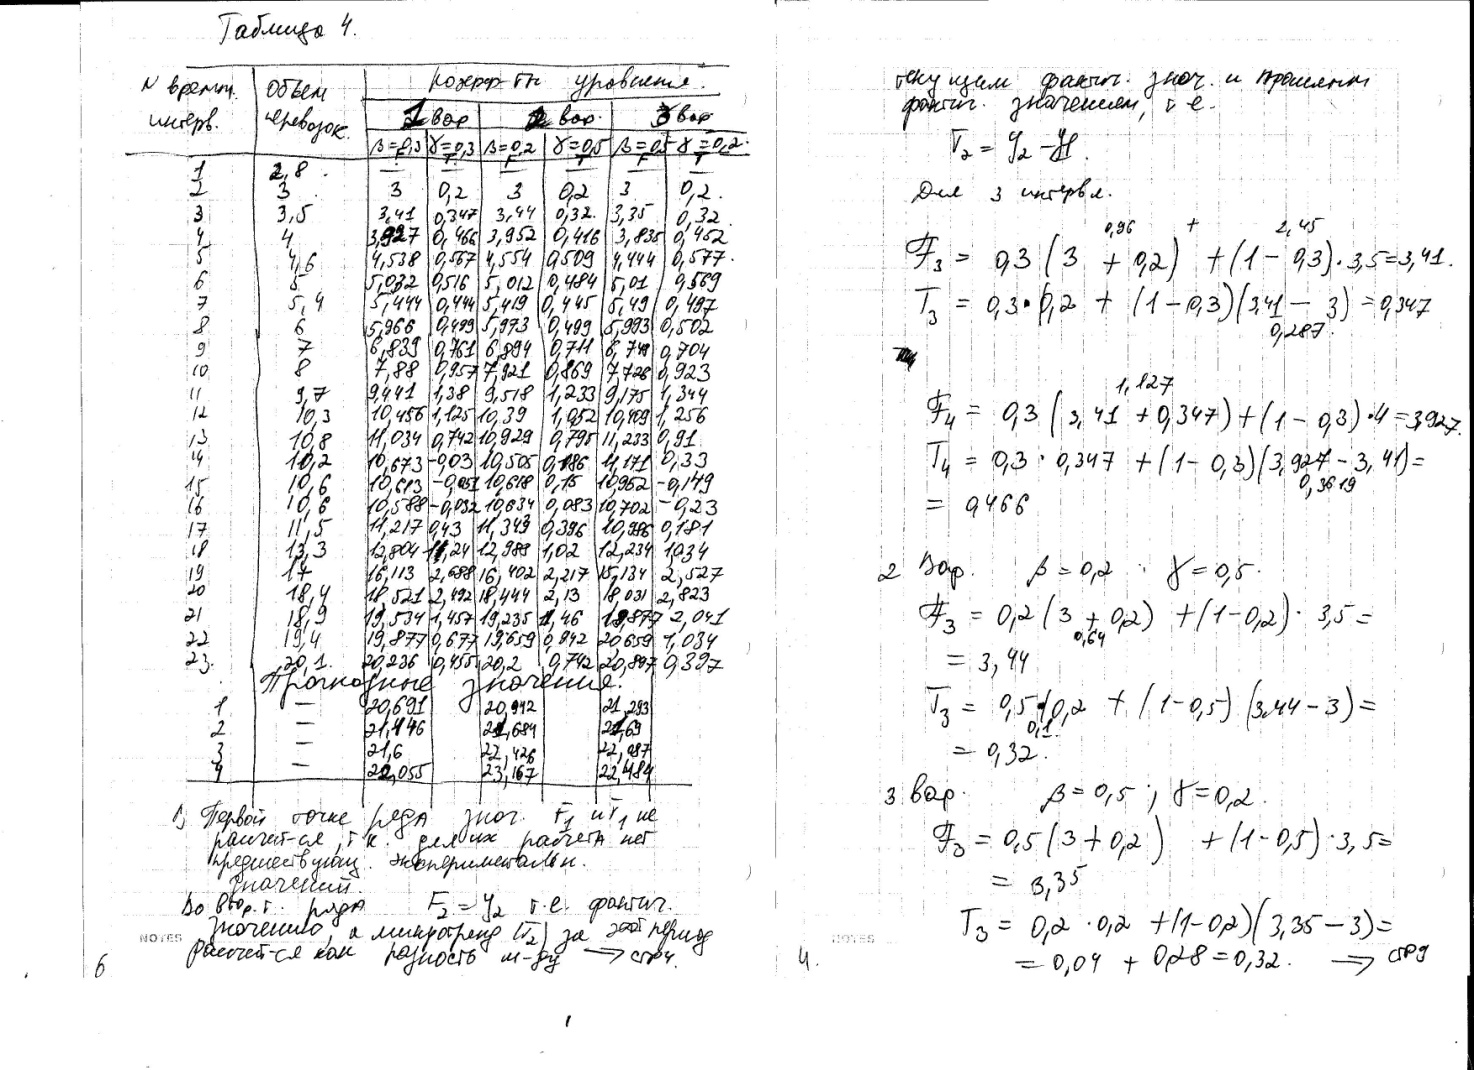 Таблица 4.
N времен. интерв. | объем перевозок. | коэфф-ты уровнения.
1 вар | 2 вар. | 3 вар
β=0,3 γ=0,3 β=0,2 γ=0,5 β=0,5 γ=0,2.
F T F T F T
1 2,8 — — — — — —
2 3 3 0,2 3 0,2 3 0,2.
3 3,5 3,41 0,347 3,44 0,32. 3,35 0,32
4 4 3,927 0,466 3,952 0,416 3,835 0,452
5 4,6 4,538 0,567 4,554 0,509 4,444 0,577.
6 5 5,032 0,516 5,012 0,484 5,01 0,569
7 5,4 5,444 0,444 5,419 0,445 5,49 0,497
8 6 5,966 0,499 5,973 0,499 5,993 0,502
9 7 6,839 0,761 6,894 0,711 6,748 0,704
10 8 7,88 0,957 7,921 0,869 7,726 0,923
11 9,7 9,441 1,38 9,518 1,233 9,175 1,344
12 10,3 10,456 1,125 10,39 1,052 10,409 1,256
13 10,8 11,034 0,742 10,929 0,795 11,233 0,91
14 10,2 10,673 -0,03 10,505 0,186 11,171 0,33
15 10,6 10,613 -0,051 10,618 0,15 10,952 -0,149
16 10,6 10,588 -0,032 10,634 0,083 10,702 -0,23
17 11,5 11,217 0,43 11,343 0,396 10,986 0,181
18 13,3 12,804 1,24 12,988 1,02 12,234 1,034
19 17 16,113 2,688 16,402 2,217 15,134 2,527
20 18,4 18,521 2,492 18,444 2,13 18,031 2,823
21 18,9 19,534 1,457 19,235 1,46 19,877 2,041
22 19,4 19,877 0,677 19,659 0,942 20,659 1,034
23. 20,1. 20,236 0,455 20,2 0,742 20,897 0,397
Прогнозные значения.
1 — 20,691 20,942 21,293
2 — 21,146 21,684 21,69
3 — 21,6 22,426 22,087
4 — 22,055 23,167 22,484
1) Первой точке ряда знач. F1 и T1 не
расчит-ся, т.к. для их расчета нет
предшествующ. экспериментальн.
значений.
Во втор.т. ряда F2 = y2 т.е. фактич.
значению, а микротренд (T2) за этот период
расчит-ся как разность м-ду → стр4.
NOTES
6
текущим фактич. знач. и прошлым
фактич. значением, т.е.
T2 = y2 - y1.
Для 3 интервл.
0,96 + 2,45
F3 = 0,3 (3 + 0,2) + (1 - 0,3) · 3,5 = 3,41.
T3 = 0,3 · 0,2 + (1 - 0,3)(3,41 - 3) = 0,347
0,287.
1,127
F4 = 0,3 (3,41 + 0,347) + (1 - 0,3) · 4 = 3,927.
T4 = 0,3 · 0,347 + (1 - 0,3)(3,927 - 3,41) =
0,3619
= 0,466
2 Вар. β = 0,2 γ = 0,5.
F3 = 0,2 (3 + 0,2) + (1 - 0,2) · 3,5 =
0,64
= 3,44
T3 = 0,5 · 0,2 + (1 - 0,5) (3,44 - 3) =
0,1
= 0,32.
3 вар. β = 0,5 ; γ = 0,2.
F3 = 0,5 (3 + 0,2) + (1 - 0,5) · 3,5 =
= 3,35
T3 = 0,2 · 0,2 + (1 - 0,2)(3,35 - 3) =
= 0,04 + 0,28 = 0,32. → стр9
NOTES
4.